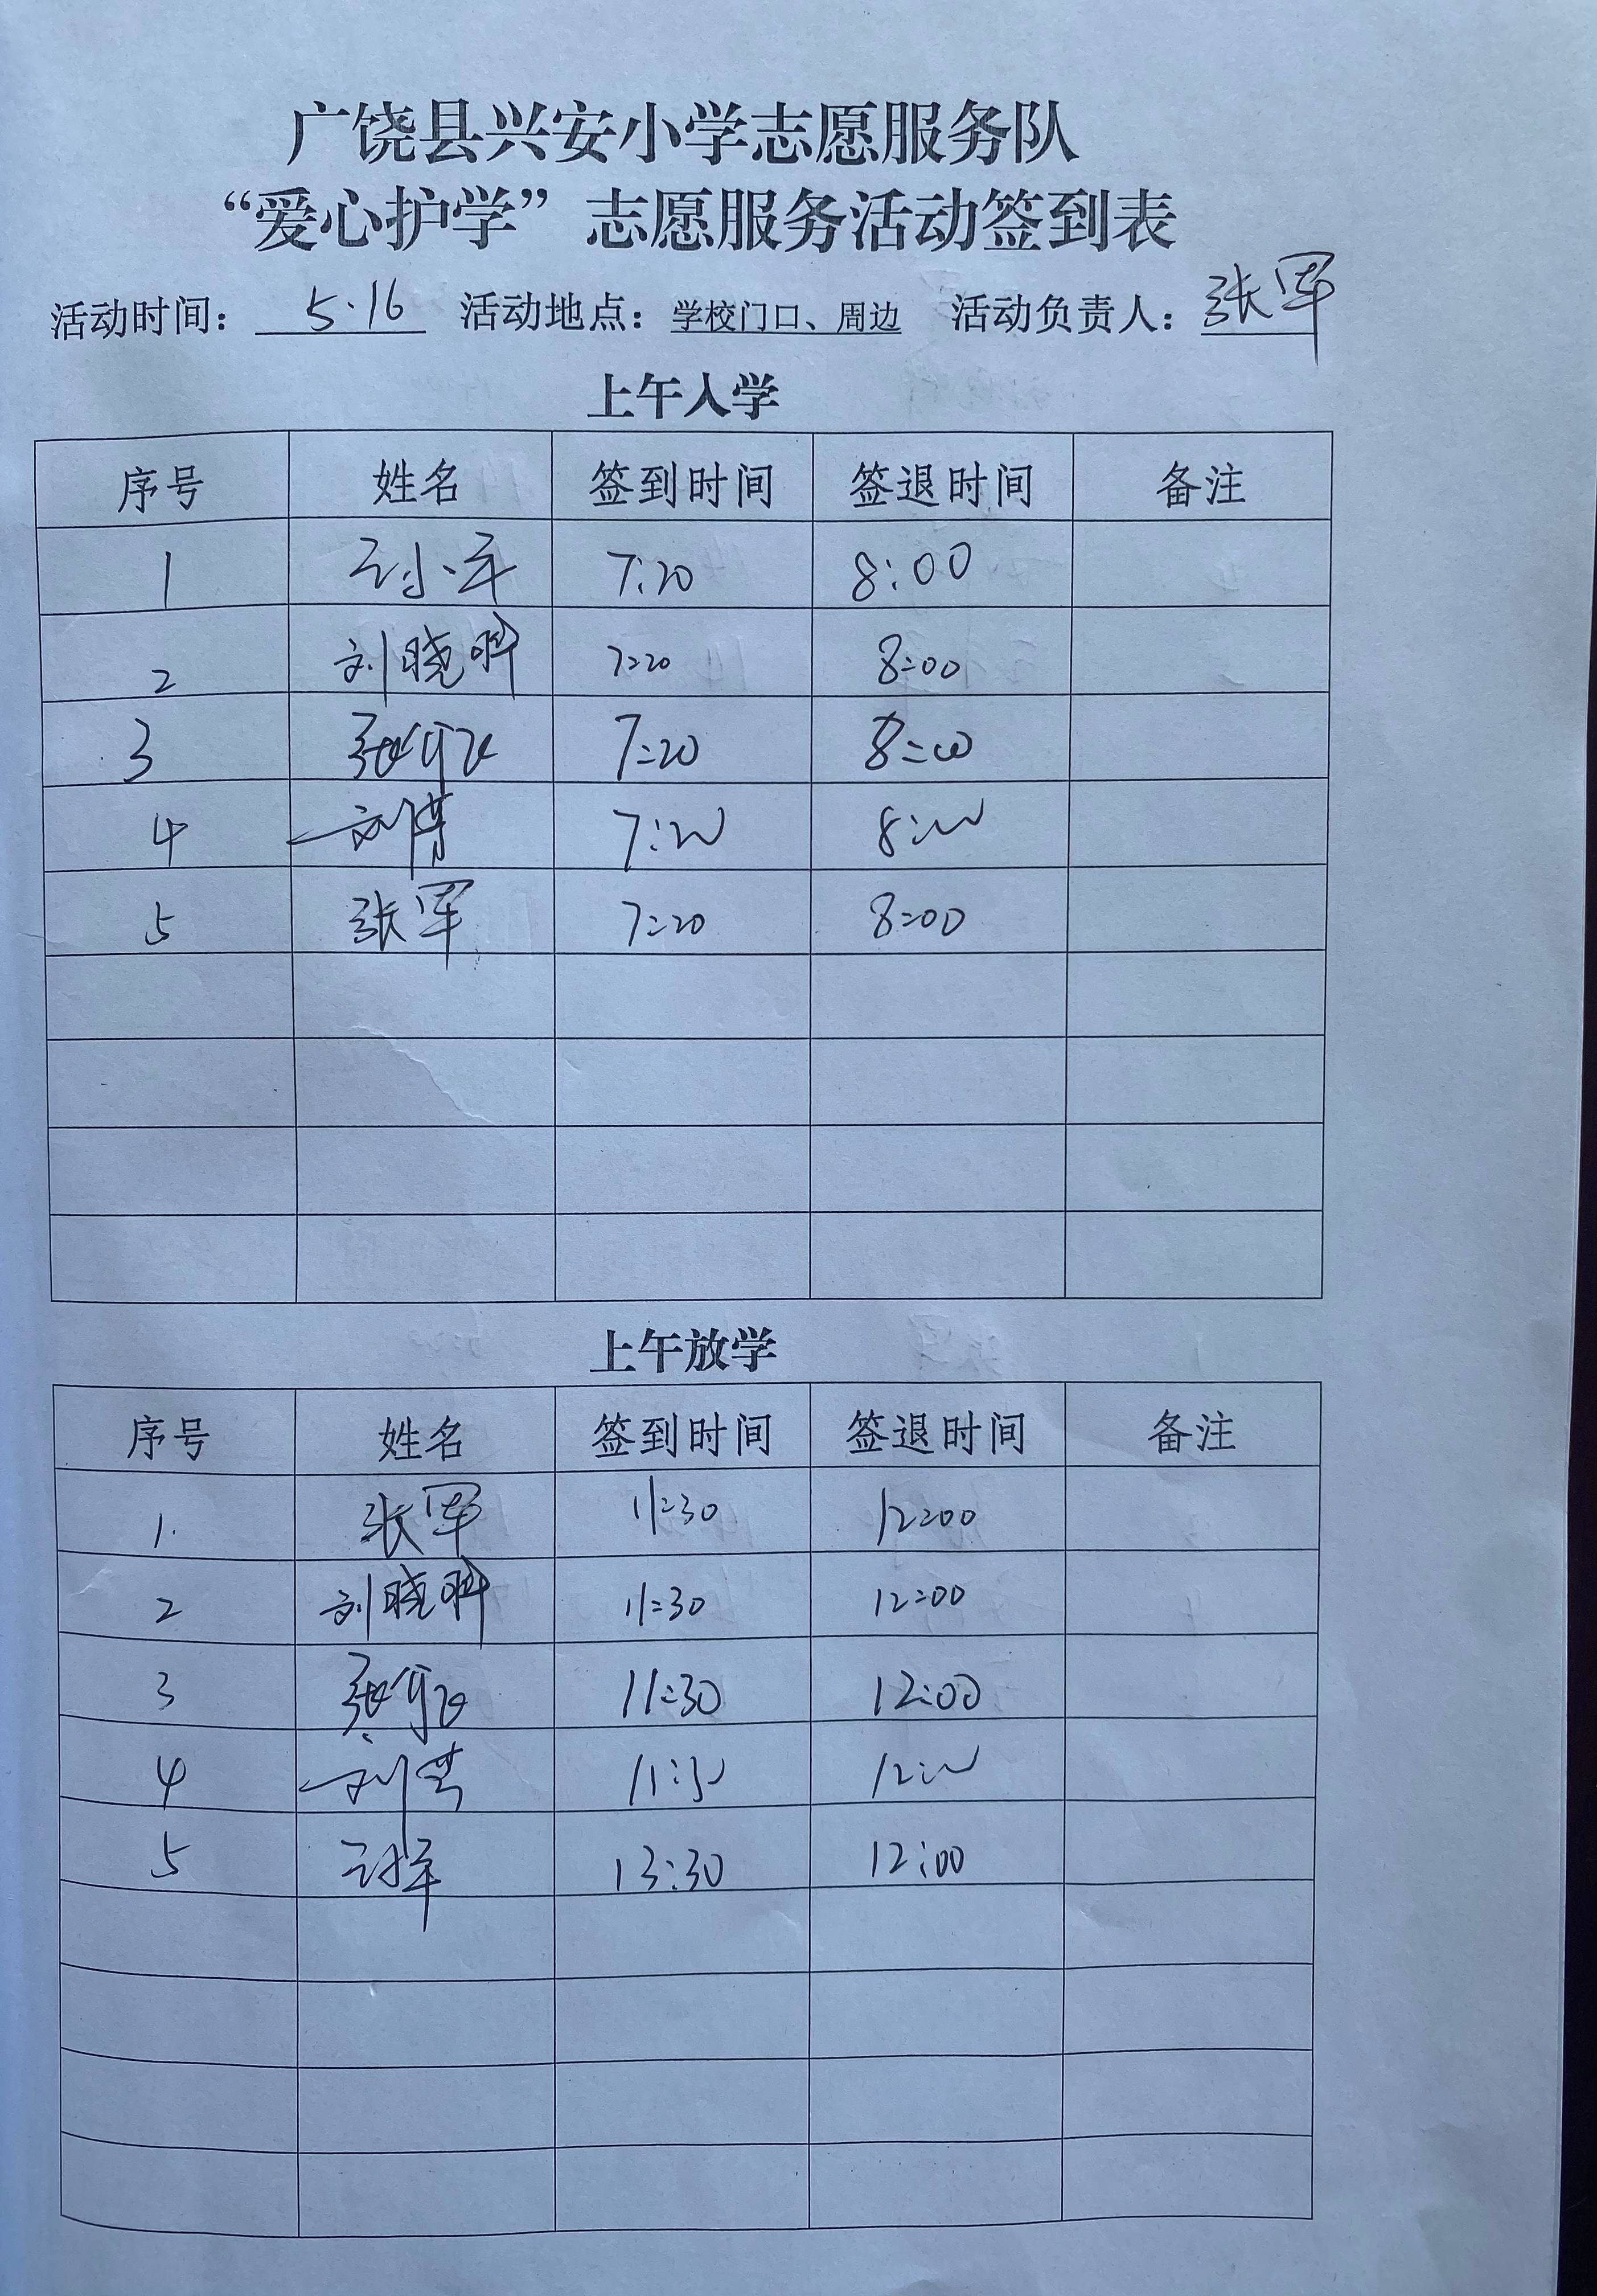 广饶县兴安小学志愿服务队
“爱心护学”志愿服务活动签到表
活动时间： 5.16 活动地点：学校门口、周边 活动负责人：张军
上午入学
序号 姓名 签到时间 签退时间 备注
1 7:20 8:00
2 刘晓 7:20 8:00
3 7:20 8:00
4 刘 7:20 8:00
5 张军 7:20 8:00
上午放学
序号 姓名 签到时间 签退时间 备注
1. 张军 11:30 12:00
2 刘晓 11:30 12:00
3 11:30 12:00
4 刘 11:30 12:00
5 13:30 12:00